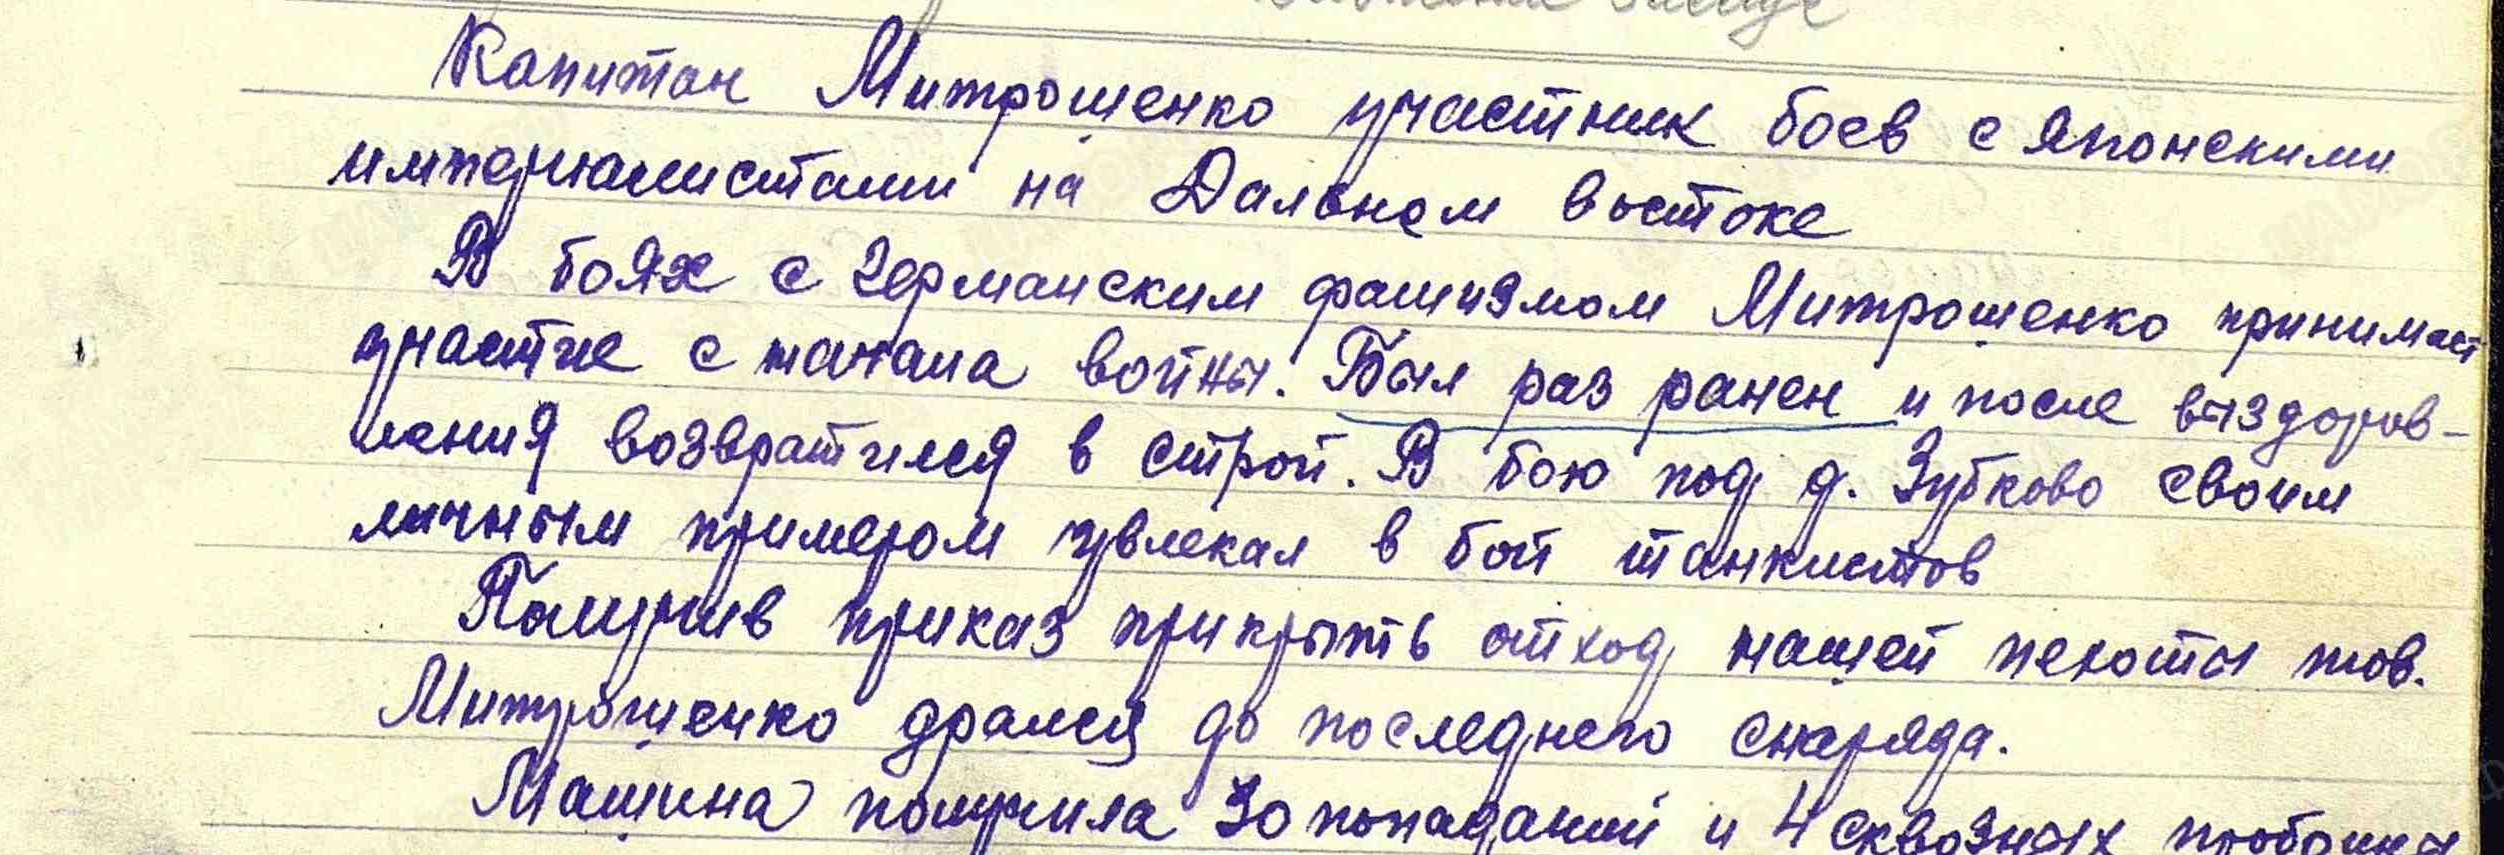 Капитан Митрошенко участник боев с японскими
империалистами на Дальнем востоке
В боях с германским фашизмом Митрошенко принимает
участие с начала войны. Был раз ранен и после выздоров-
ления возвратился в строй. В бою под д. Зубково своим
личным примером увлекал в бой танкистов
Получив приказ прикрыть отход нашей пехоты тов.
Митрошенко дрался до последнего снаряда.
Машина получила 30 попаданий и 4 сквозных пробоины